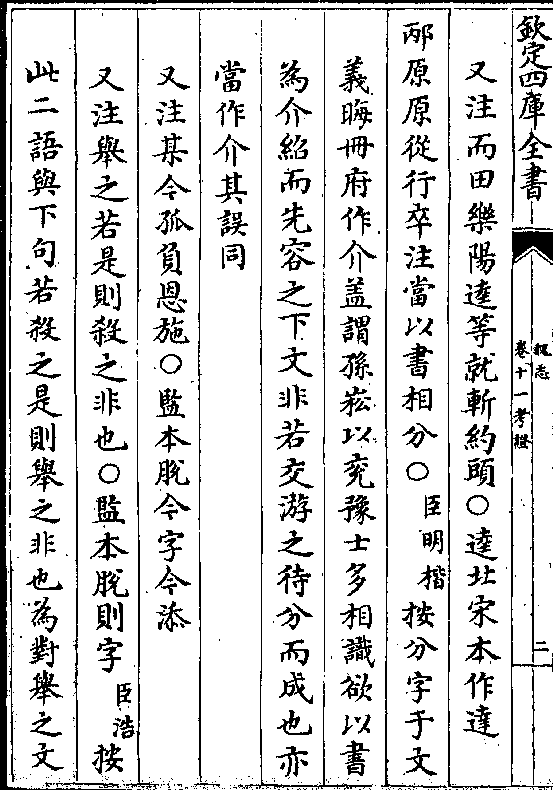 欽定四庫全書
魏志
卷十一考證
二
又注而田樂陽逵等就斬約頭○逵北宋本作達
邴原原從行卒注當以書相分○臣明楷按分字于文
義晦冊府作介盖謂孫崧以兖豫士多相識欲以書
為介紹而先容之下文非若交游之待分而成也亦
當作介其誤同
又注某今孤負恩施○監本脫今字今添
又注舉之若是則殺之非也○監本脫則字臣浩按
此二語與下句若殺之是則舉之非也為對舉之文